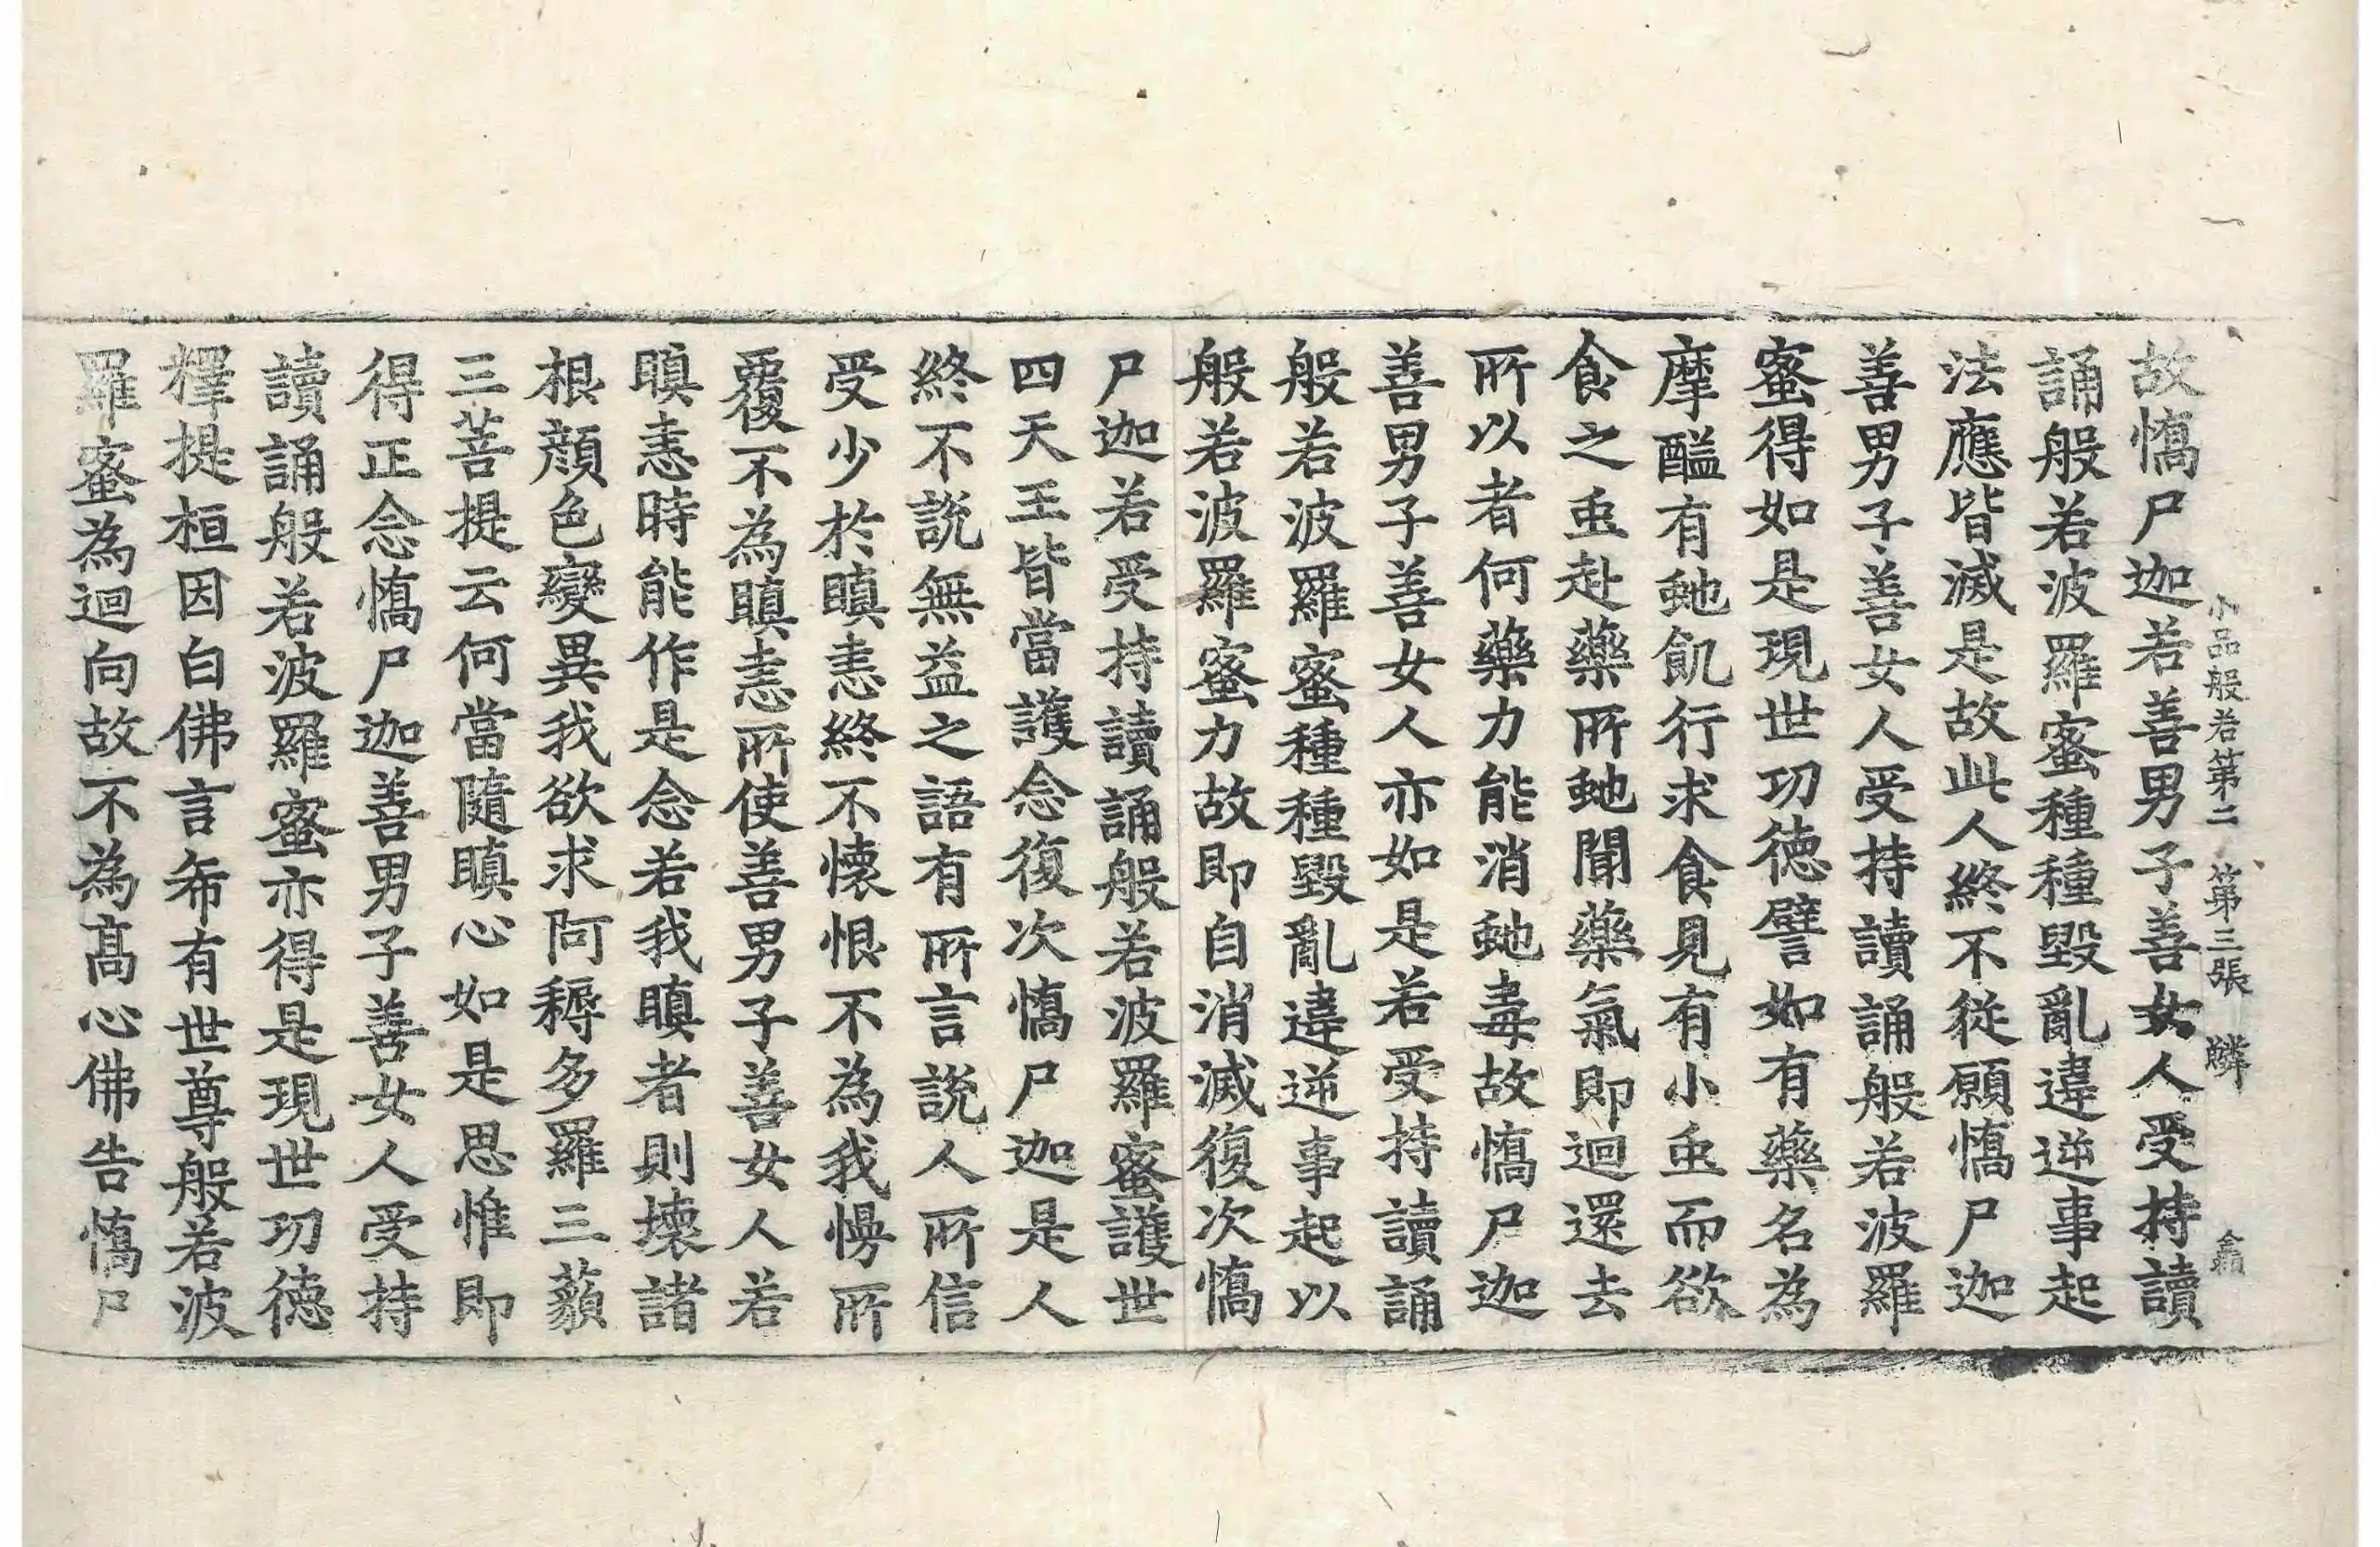 小品般若第二 第三張 鱗
故憍尸迦若善男子善女人受持讀
誦般若波羅蜜種種毀亂違逆事起
法應皆滅是故此人終不從願憍尸迦
善男子善女人受持讀誦般若波羅
蜜得如是現世功德譬如有藥名為
摩醯有虵飢行求食見有小䖝而欲
食之䖝赴藥所虵聞藥氣即迴還去
所以者何藥力能消虵毒故憍尸迦
善男子善女人亦如是若受持讀誦
般若波羅蜜種種毀亂違逆事起以
般若波羅蜜力故即自消滅復次憍
尸迦若受持讀誦般若波羅蜜護世
四天王皆當護念復次憍尸迦是人
終不說無益之語有所言說人所信
受少於瞋恚終不懷恨不為我慢所
覆不為瞋恚所使善男子善女人若
瞋恚時能作是念若我瞋者則壞諸
根顏色變異我欲求阿耨多羅三藐
三菩提云何當隨瞋心如是思惟即
得正念憍尸迦善男子善女人受持
讀誦般若波羅蜜亦得是現世功德
釋提桓因白佛言希有世尊般若波
羅蜜為迴向故不為高心佛告憍尸